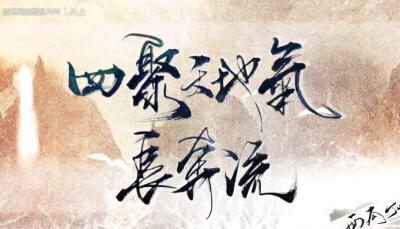 四聚天地氣
長奔流